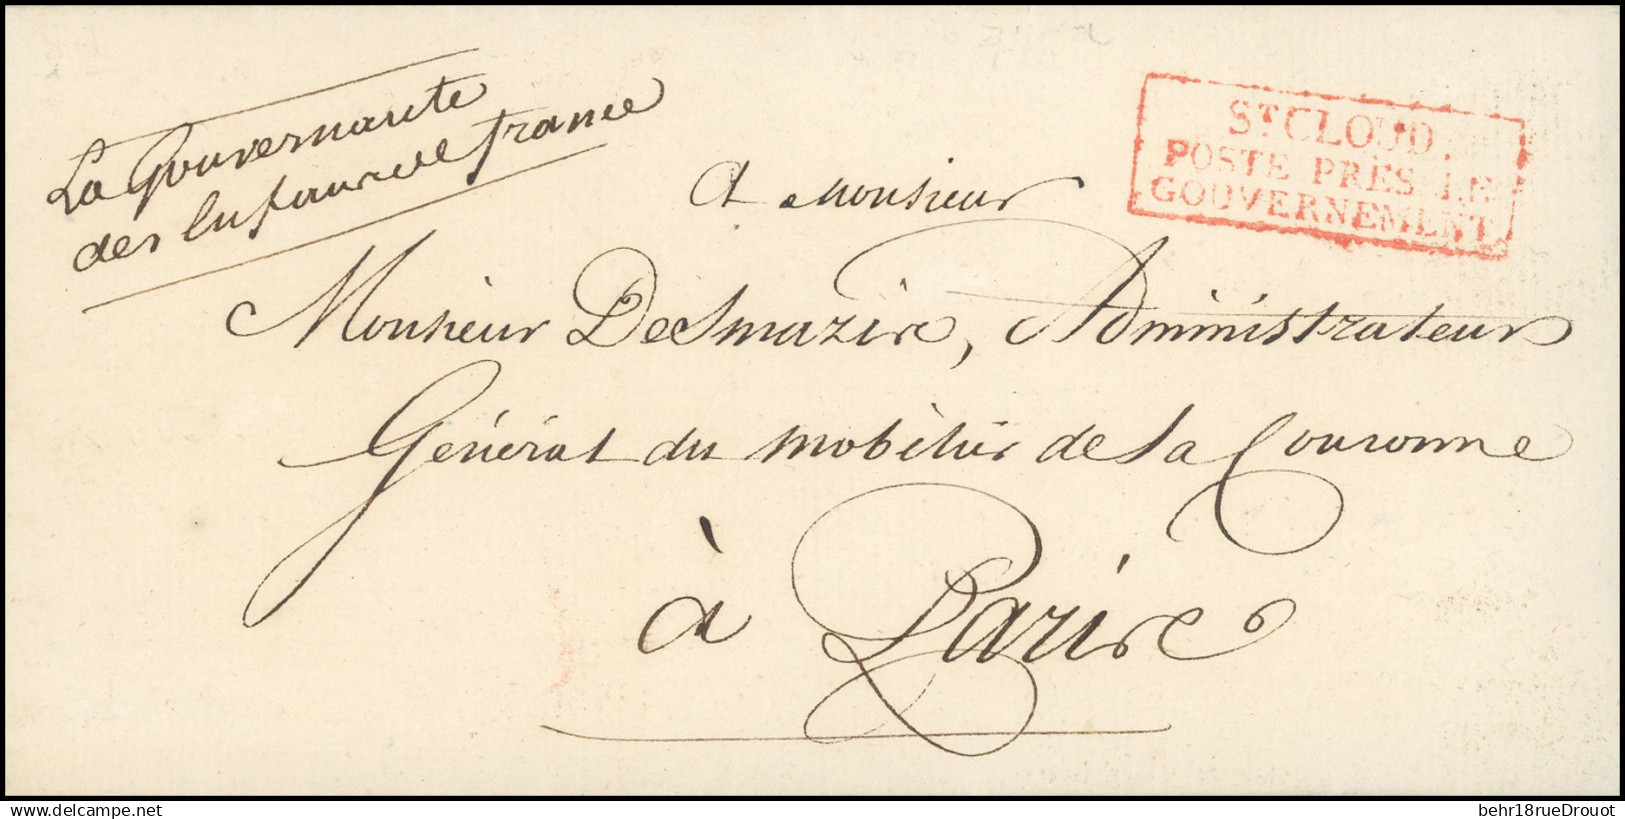 La Gouvernante
des Enfans de france
St CLOUD.
POSTE PRÈS LE
GOUVERNEMENT.
A Monsieur
Monsieur Desmazis, Administrateur
Général du mobilier de la Couronne
à Paris
www.delcampe.net
behr18rueDrouot